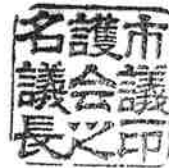 名護市
議会議
長之印